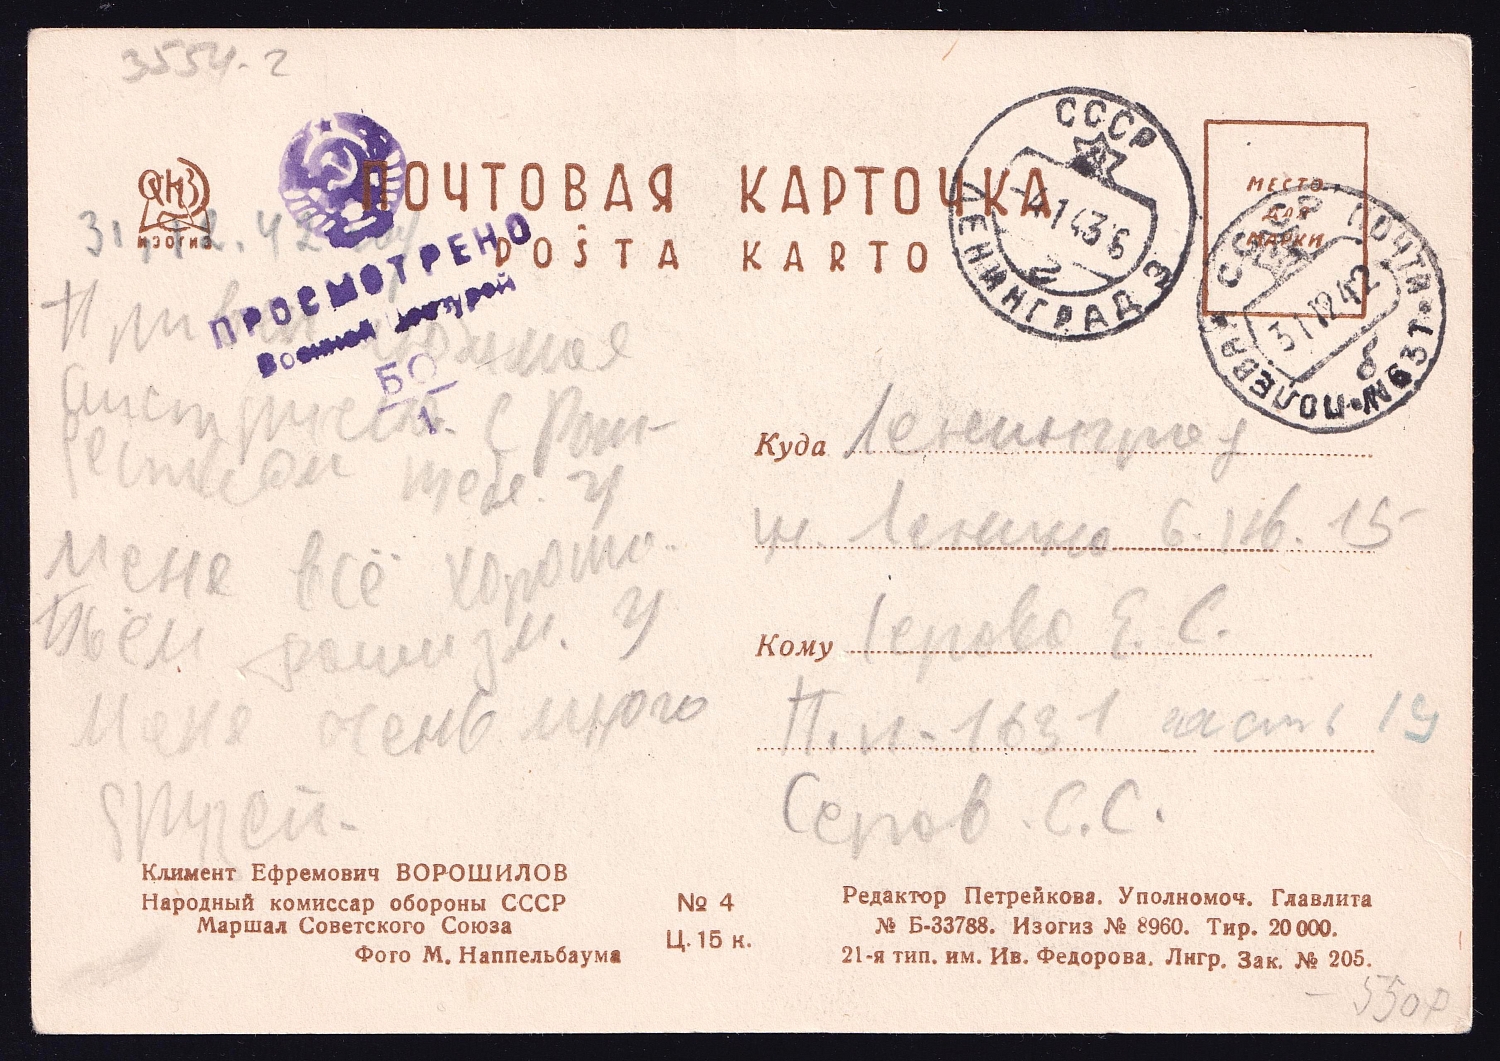 3554-2
ИЗОГИЗ
ПОЧТОВАЯ КАРТОЧКА
POŜTA KARTO
ПРОСМОТРЕНО
Военной цензурой
БО
1
СССР
ЛЕНИНГРАД 3
-4 1 43 6
2
МЕСТО
ДЛЯ
МАРКИ
СССР ПОЧТА
ПОЛЕВАЯ №631
31 12 42
б
31.12.42
Привет
С
тебя. У
меня всё хорошо.
Бьём фашизм. У
меня очень много
друзей.
Куда Ленинград
Ленина 6. кв. 15
Кому Серова Е. С.
П.п. 1631 часть 14
Серов С.С.
Климент Ефремович ВОРОШИЛОВ
Народный комиссар обороны СССР
Маршал Советского Союза
Фото М. Наппельбаума
№ 4
Ц. 15 к.
Редактор Петрейкова. Уполномоч. Главлита
№ Б-33788. Изогиз № 8960. Тир. 20 000.
21-я тип. им. Ив. Федорова. Лнгр. Зак. № 205.
- 550р